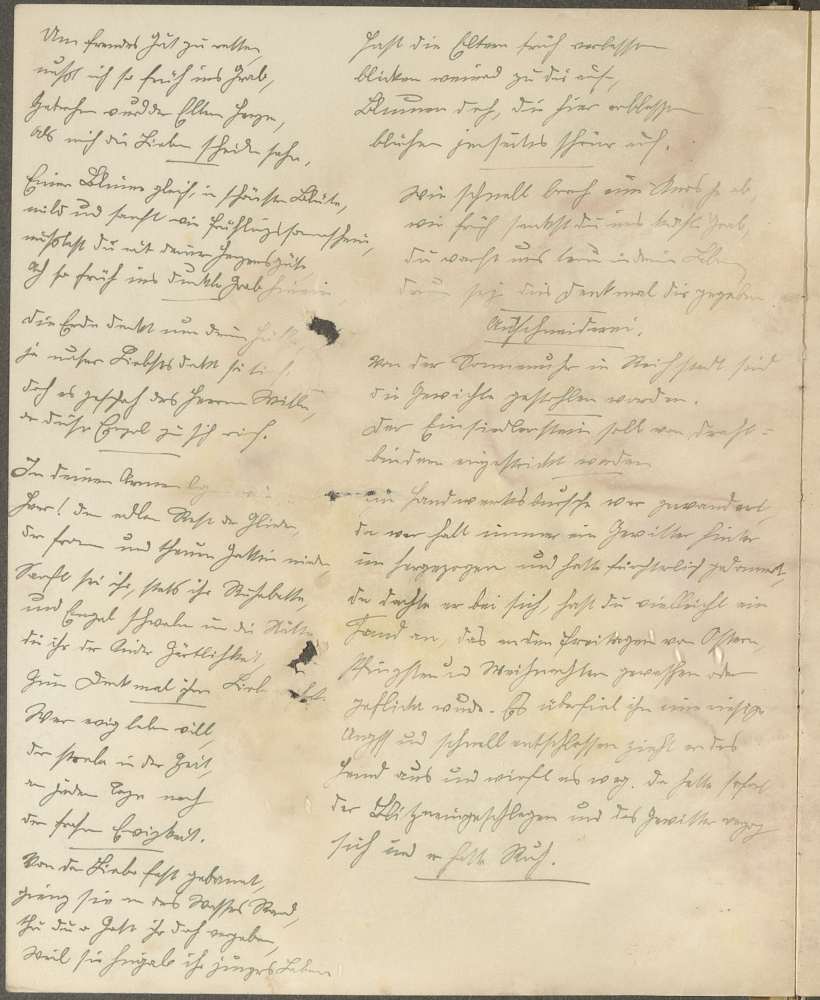 Um fremdes Gut zu retten,
mußt ich so früh ins Grab,
der Eltern Herzen,
als mich die Lieben scheiden sahn,
Einer Blume gleich, in schönster Blüte,
mild und sanft wie Frühlingssonnenschein,
mußtest du mit deiner Herzensgüte
ach so früh ins dunkle Grab hinein,
die Erde deckt nun dein
ja unser Liebstes deckt sie
doch es geschah des Herren Wille,
der diesen Engel zu sich rief.
In deinen Armen
Herr! den edlen Rest der Glieder,
der from und theuren Gattin nieder,
Sanft sei ihr, stets ihr Ruhebette,
und Engel schweben um die Stätte
die ihr der Kinder Zärtlichkeit
zum Denkmal ihrer Liebe
Wer ewig leben will,
der strebe in der Zeit,
an jedem Tage nach
der frohen Ewigkeit.
Von der Liebe fest gebannt,
gieng sie an des Wassers Rand,
thu du o Gott ihr doch vergeben,
Weil sie hingab ihr junges Leben
Hast die Eltern früh verlassen
blicken weinend zu dir auf,
Blumen doch, die hier erblassen
blühen jenseits schöner auf.
Wie schnell brach ab,
wie früh sankst du ins Grab,
du warst uns treu in deinem Leben
drum sei dies Denkmal dir gegeben
Aufschneiderei.
Von der Sonnenuhr in Reichstadt sind
die Gewichte gestohlen worden.
Der Einsiedlerstein soll von Draht-
bindern eingestrickt werden
ein Handwerksbursche war gewandert,
da war halt immer ein Gewitter hinter
im hergezogen und hatte fürchterlich gedonnert,
da dachte er bei sich, hast du vielleicht ein
Hemd an, das an den Freitagen von Ostern,
Pfingsten und Weihnachten gewaschen oder
geflickt wurde. Es überfiel ihn eine
Angst und schnell entschlossen zieht er das
Hemd aus und wirft es weg. Da hatte sofort
der Blitz neingeschlagen und das Gewitter
sich und er hatte Ruh.